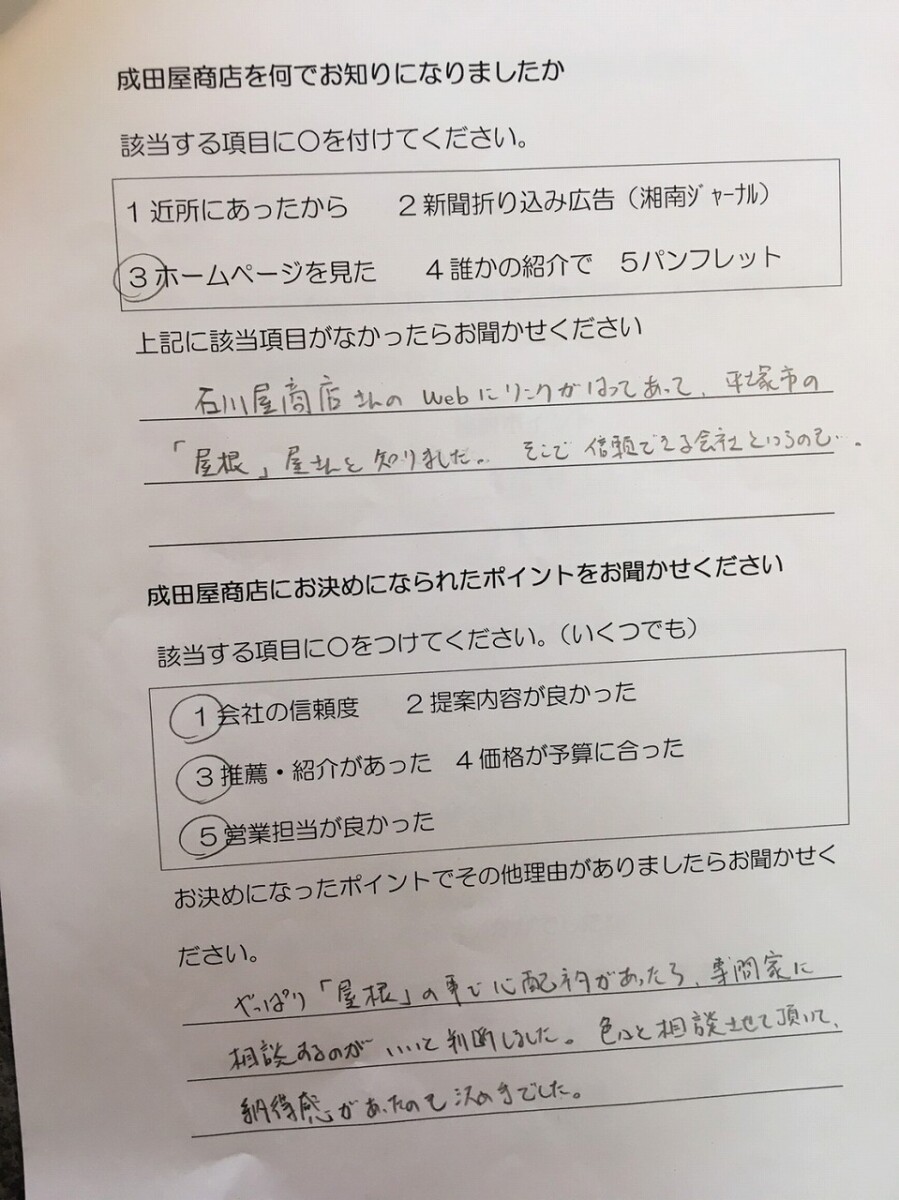 成田屋商店を何でお知りになりましたか
該当する項目に〇を付けてください。
1 近所にあったから 2 新聞折り込み広告（湘南ｼﾞｬｰﾅﾙ）
3 ホームページを見た 4 誰かの紹介で 5パンフレット
上記に該当項目がなかったらお聞かせください
石川屋商店さんの Webにリンクがはってあって、平塚市の
「屋根」屋さんと知りました。そこで信頼できる会社というのも…。
成田屋商店にお決めになられたポイントをお聞かせください
該当する項目に〇をつけてください。（いくつでも）
1 会社の信頼度 2 提案内容が良かった
3 推薦・紹介があった 4 価格が予算に合った
5 営業担当が良かった
お決めになったポイントでその他理由がありましたらお聞かせく
ださい。
やっぱり「屋根」の事で心配ネタがあったら、専門家に
相談するのがいいと判断しました。色々と相談させて頂いて、
納得感があったのも決め手でした。